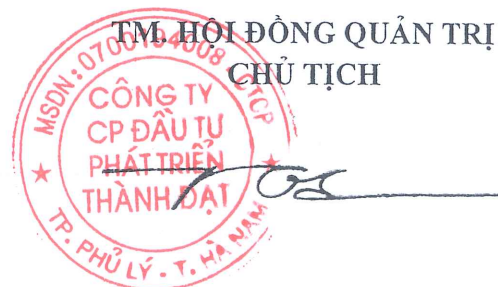 TM. HỘI ĐỒNG QUẢN TRỊ
CHỦ TỊCH
MSDN: 
CTCP
CÔNG TY
CP ĐẦU TƯ
PHÁT TRIỂN
THÀNH ĐẠT
TP. PHỦ LÝ - T. HÀ NAM